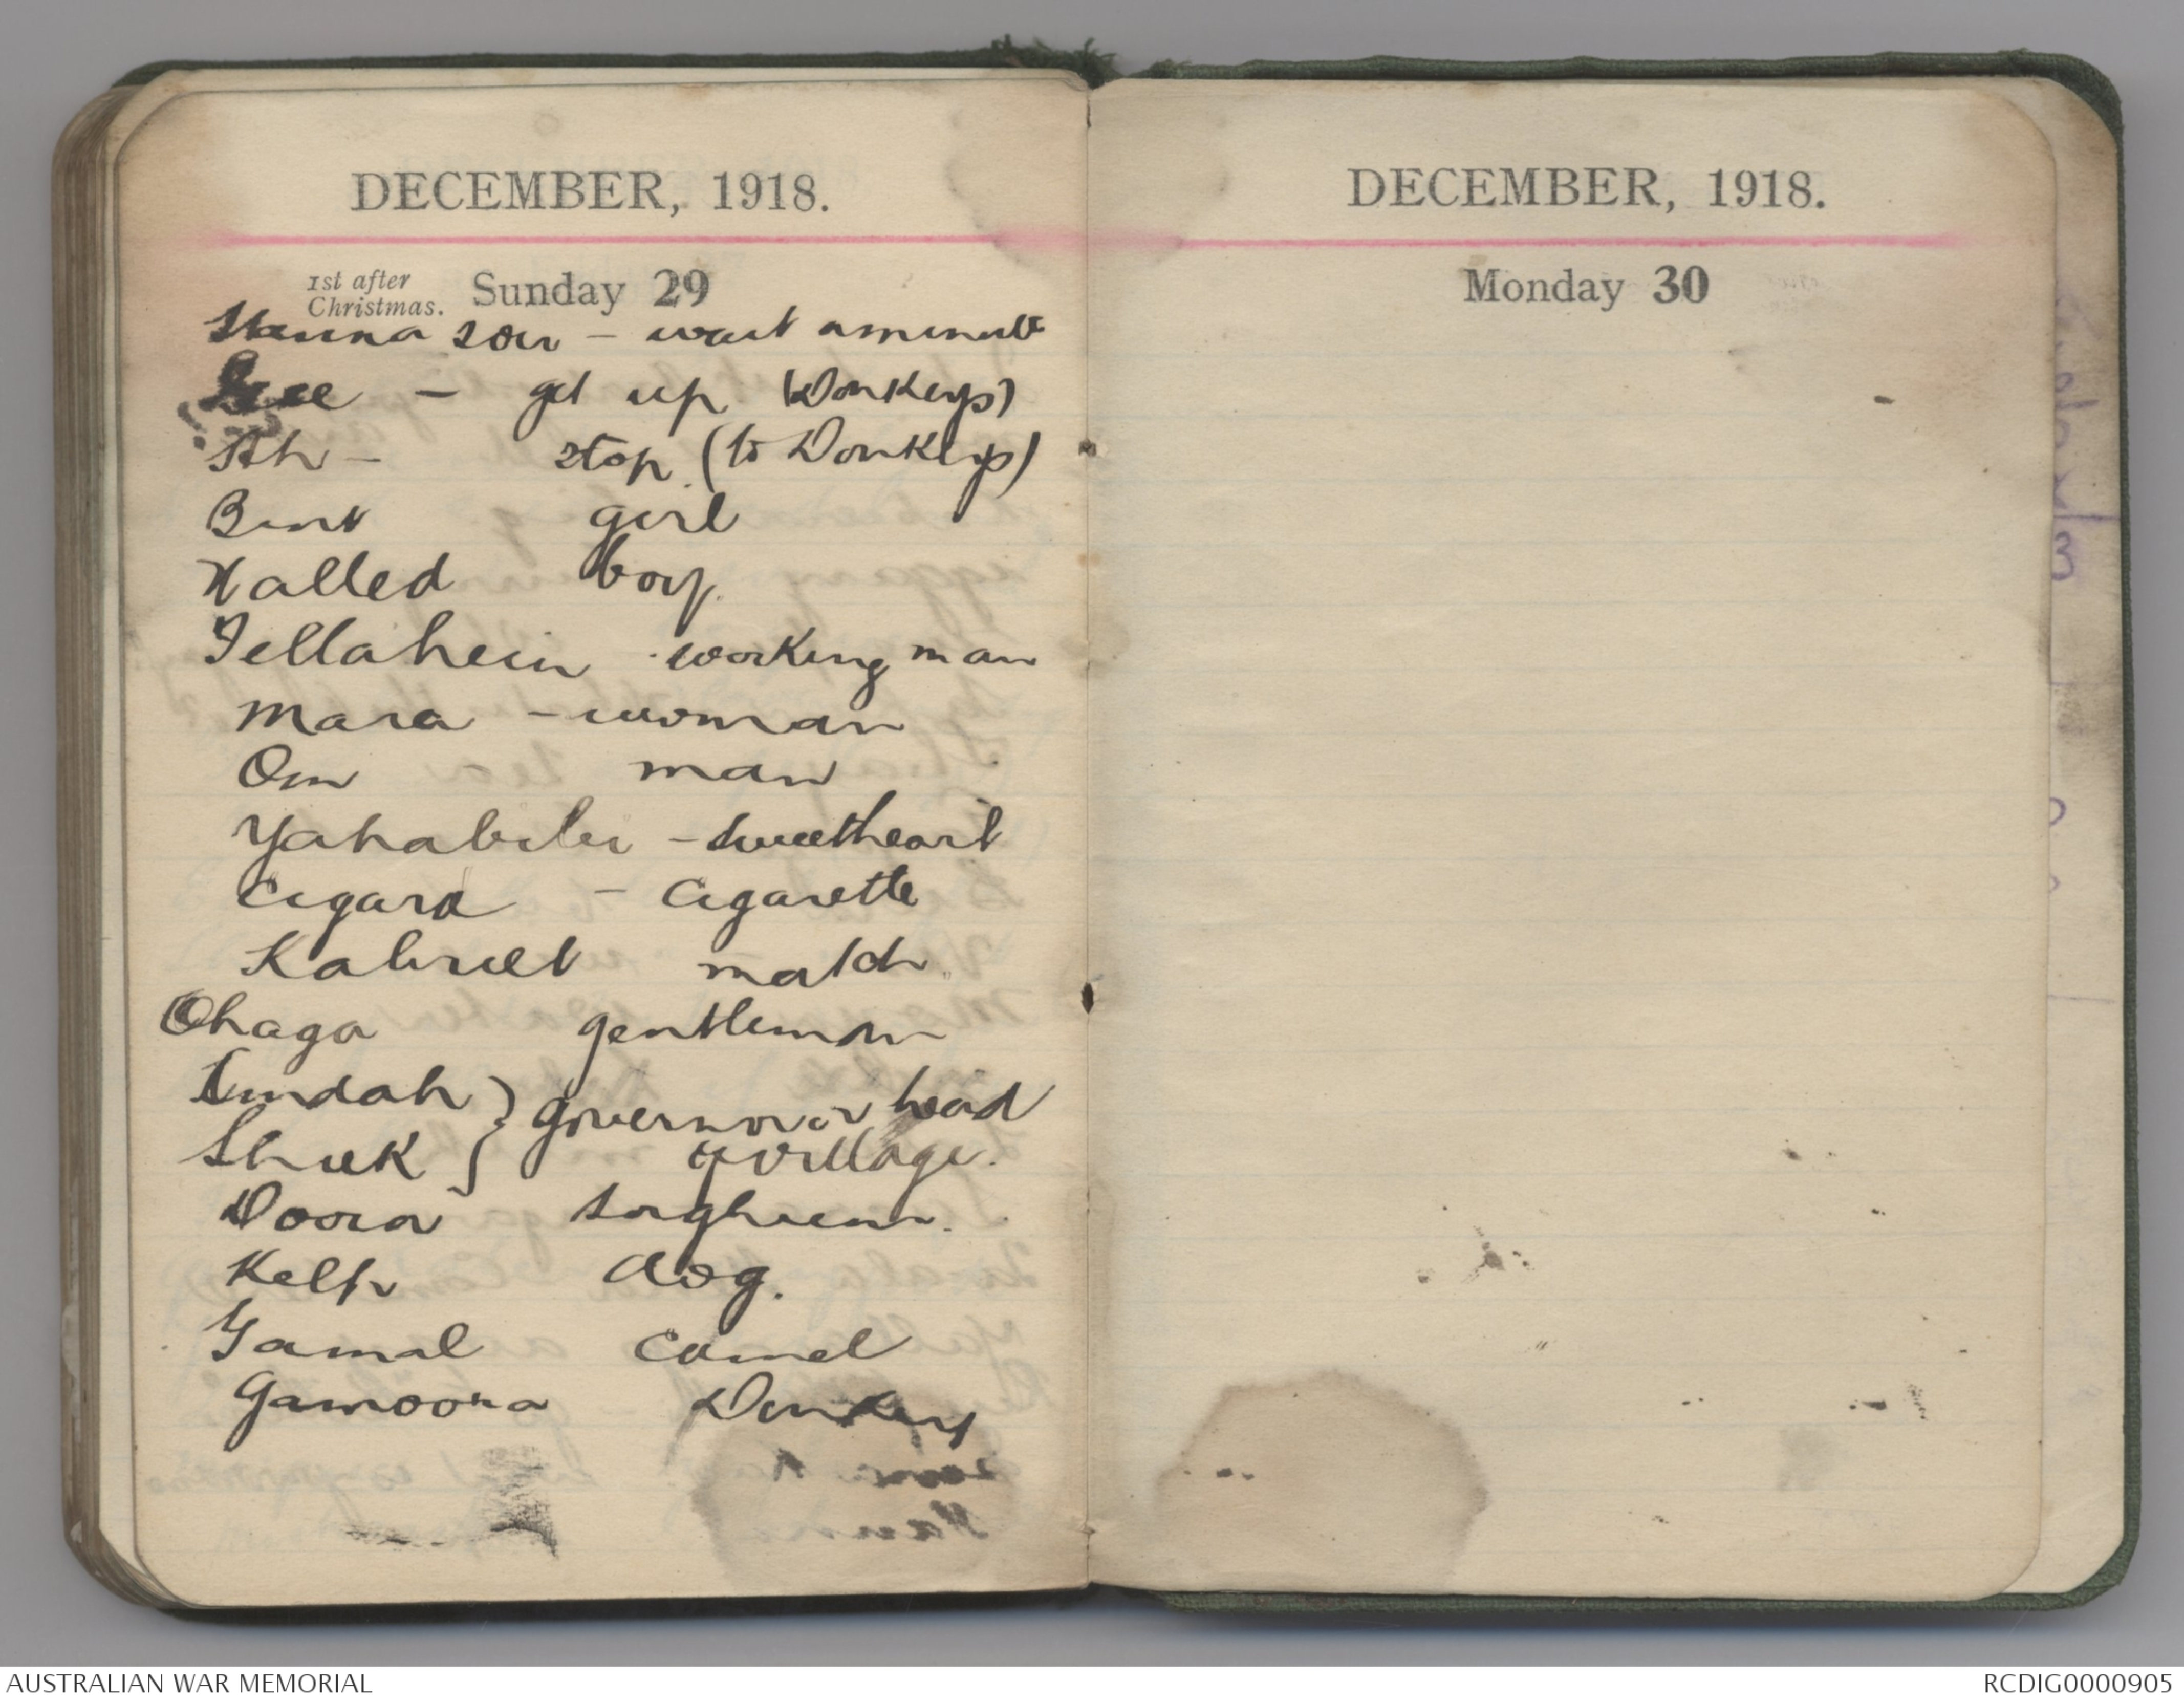 DECEMBER, 1918.
1st after
Christmas. Sunday 29
Stanna sou - wait a minute
- get up (Donkeys)
Ah - stop (to Donkeys)
Bint girl
Walled boy
Fellahein working man
Mara - woman
Om man
Yahabibi - sweetheart
Cigara - Cigarette
Kabriet match
Ohaga gentleman
Omdah } governor or head
Shiek } of village.
Doora Sorghum.
Kelb dog.
Gamal Camel
Gamoora Donkey
DECEMBER, 1918.
Monday 30
AUSTRALIAN WAR MEMORIAL
RCDIG0000905